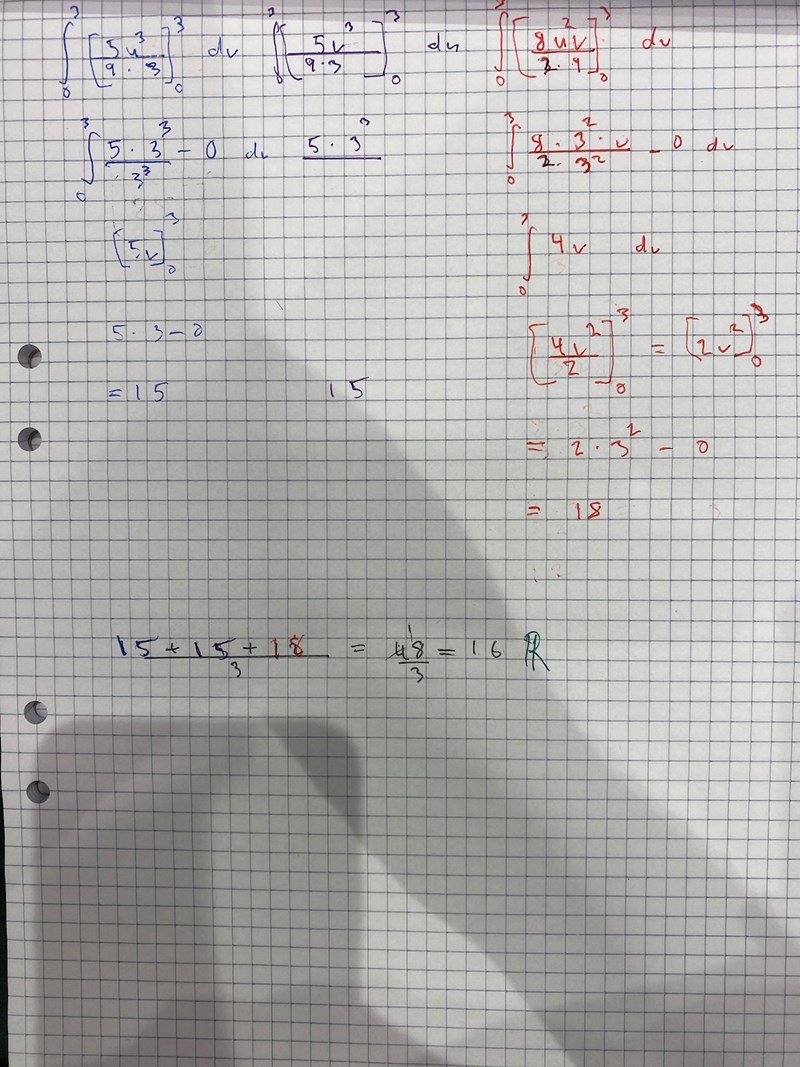 ∫₀³ [5u³/(9·3)]₀³ dv ∫₀³ [5v³/(9·3)]₀³ du ∫₀³ [8u²v/(2·9)]₀³ dv
∫₀³ 5·3³/3³ - 0 dv 5·3³ ∫₀³ 8·3²·v/(2·3²) - 0 dv
[5v]₀³ ∫₀³ 4v dv
5·3-0 [4v²/2]₀³ = [2v²]₀³
=15 15 = 2·3² - 0
= 18
(15+15+18)/3 = 48/3 = 16 R